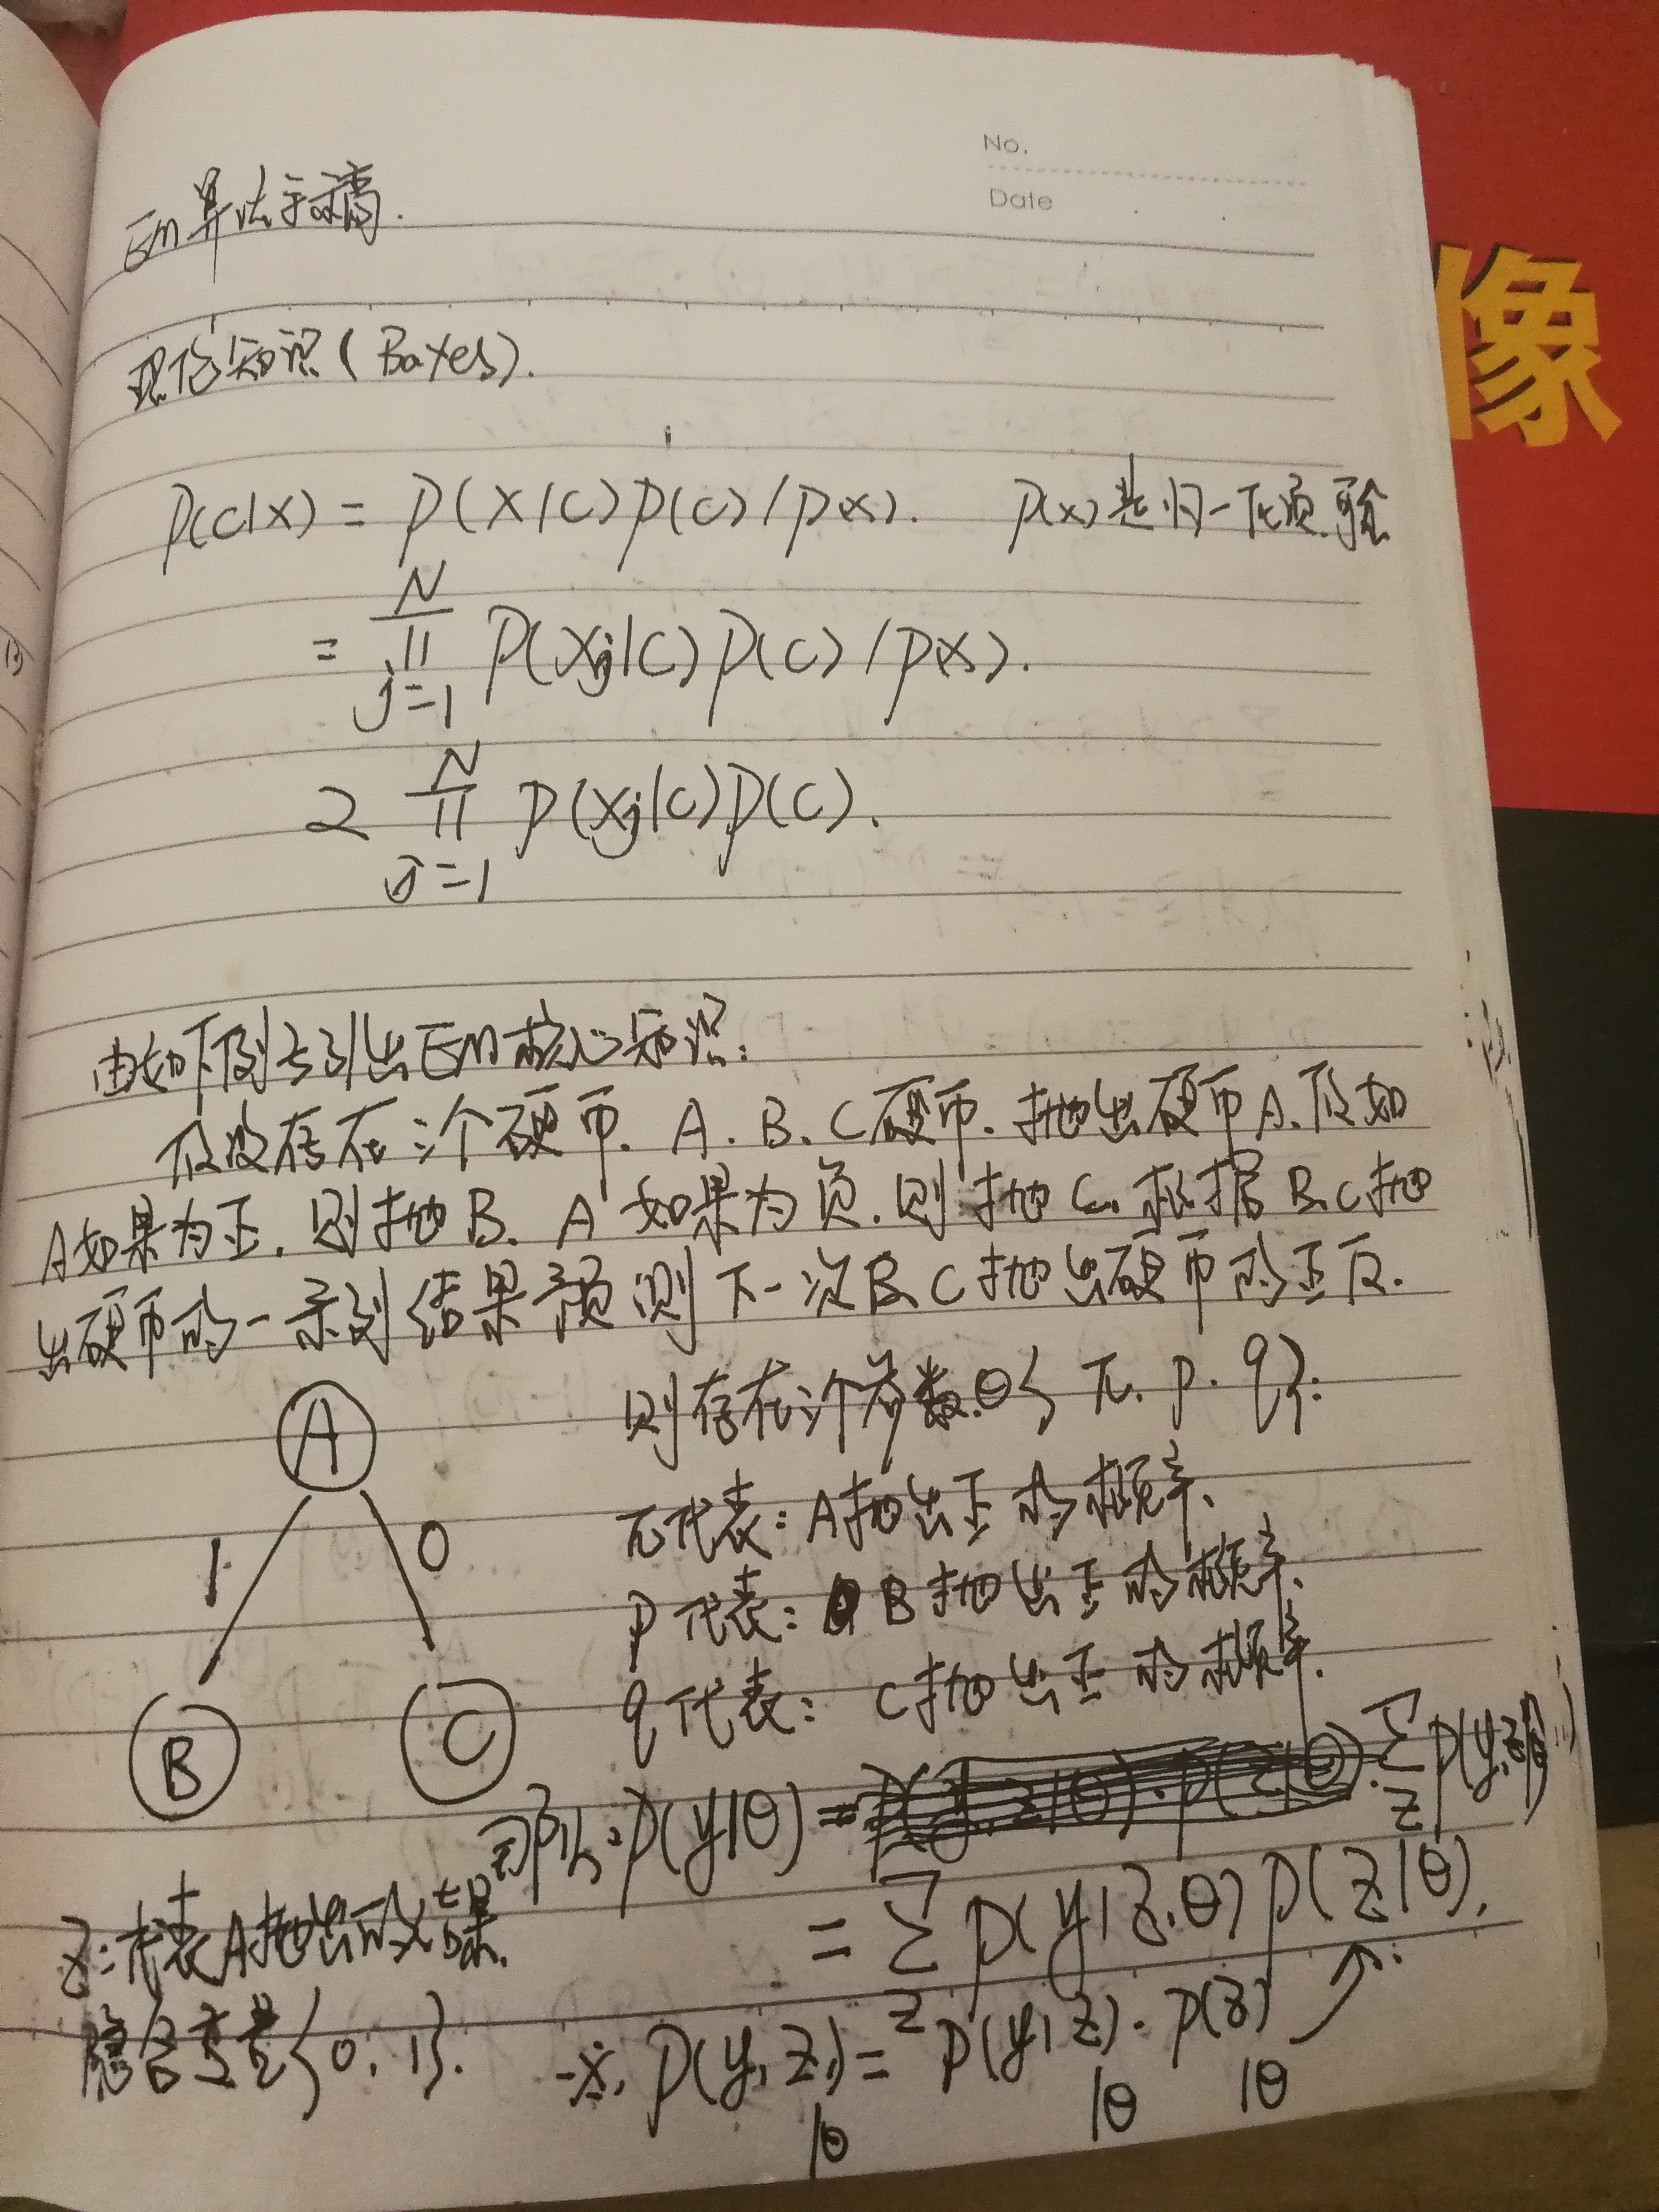 No.
Date
Em算法手稿.
像
现今知识(Bayes).
P(C|X) = P(X|C)P(C)/P(X). P(X)是归一化项.
= ∏_{j=1}^{N} P(Xj|C)P(C)/P(X).
∝ ∏_{j=1}^{N} P(Xj|C)P(C).
由如下例子引出Em核心知识:
假设存在三个硬币. A. B. C硬币. 抛出硬币A. 假如
A如果为正. 则抛B. A如果为负. 则抛C. 根据B.C抛
出硬币的一系列结果预测下一次B.C抛出硬币的正反.
则存在三个参数.θ{π. p. q}:
A
1 0
B C
π代表: A抛出正的概率.
p代表: B抛出正的概率.
q代表: C抛出正的概率.
所以: P(y|θ) = Σ_z P(y,z|θ)
= Σ_z P(y|z,θ)P(z|θ).
z: 代表A抛出的结果.
隐含变量{0, 1}.
P(y, z|θ) = P(y|z|θ)·P(z|θ)